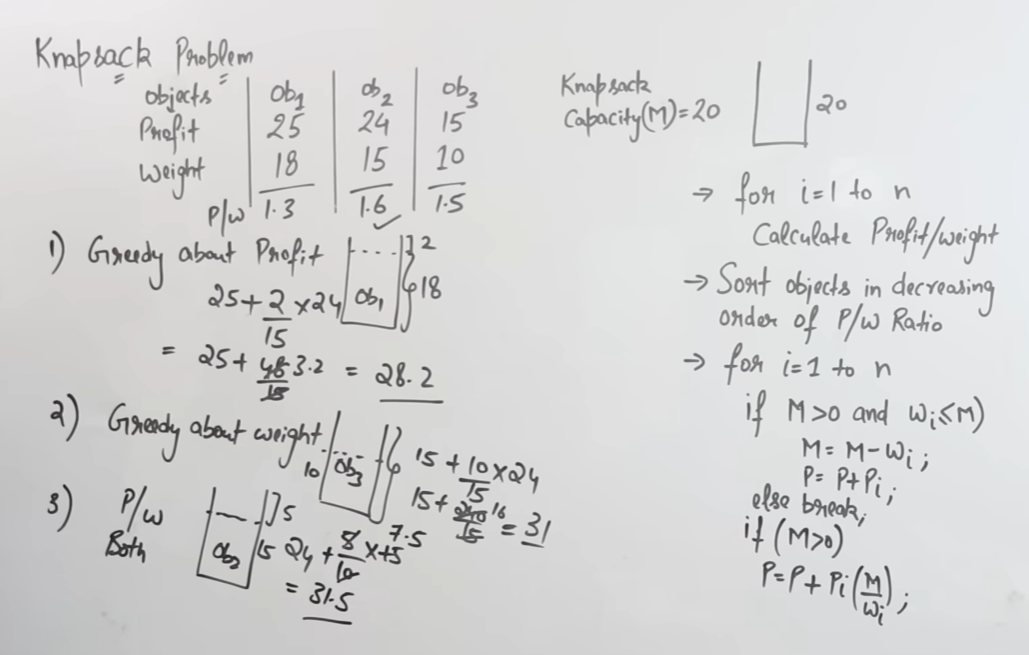 Knapsack Problem
objects ob1 ob2 ob3
Profit 25 24 15
Weight 18 15 10
P/W 1.3 1.6 1.5
1) Greedy about Profit
2
18
ob1
25 + 2/15 × 24
= 25 + 48/15 3.2 = 28.2
2) Greedy about weight
10 ob3
15 + 10/15 × 24
15 + 240/15 16 = 31
3) P/W
Both
5
15
ob2
24 + 5/10 × 15 7.5
= 31.5
Knapsack
Capacity(M) = 20
20
→ for i=1 to n
Calculate Profit/weight
→ Sort objects in decreasing
order of P/W Ratio
→ for i=1 to n
if M>0 and Wi≤M)
M = M-Wi;
P = P+Pi;
else break;
if (M>0)
P=P+Pi(M/Wi);